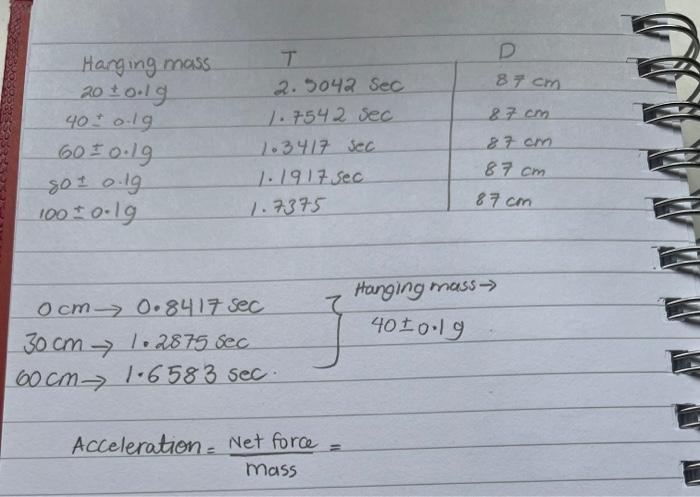 Hanging mass T D
20 ± 0.1g 2.5042 sec 87 cm
40 ± 0.1g 1.7542 sec 87 cm
60 ± 0.1g 1.3417 sec 87 cm
80 ± 0.1g 1.1917 sec 87 cm
100 ± 0.1g 1.7375 87 cm
0 cm → 0.8417 sec Hanging mass →
30 cm → 1.2875 sec 40 ± 0.1 g
60 cm → 1.6583 sec.
Acceleration = Net force =
mass